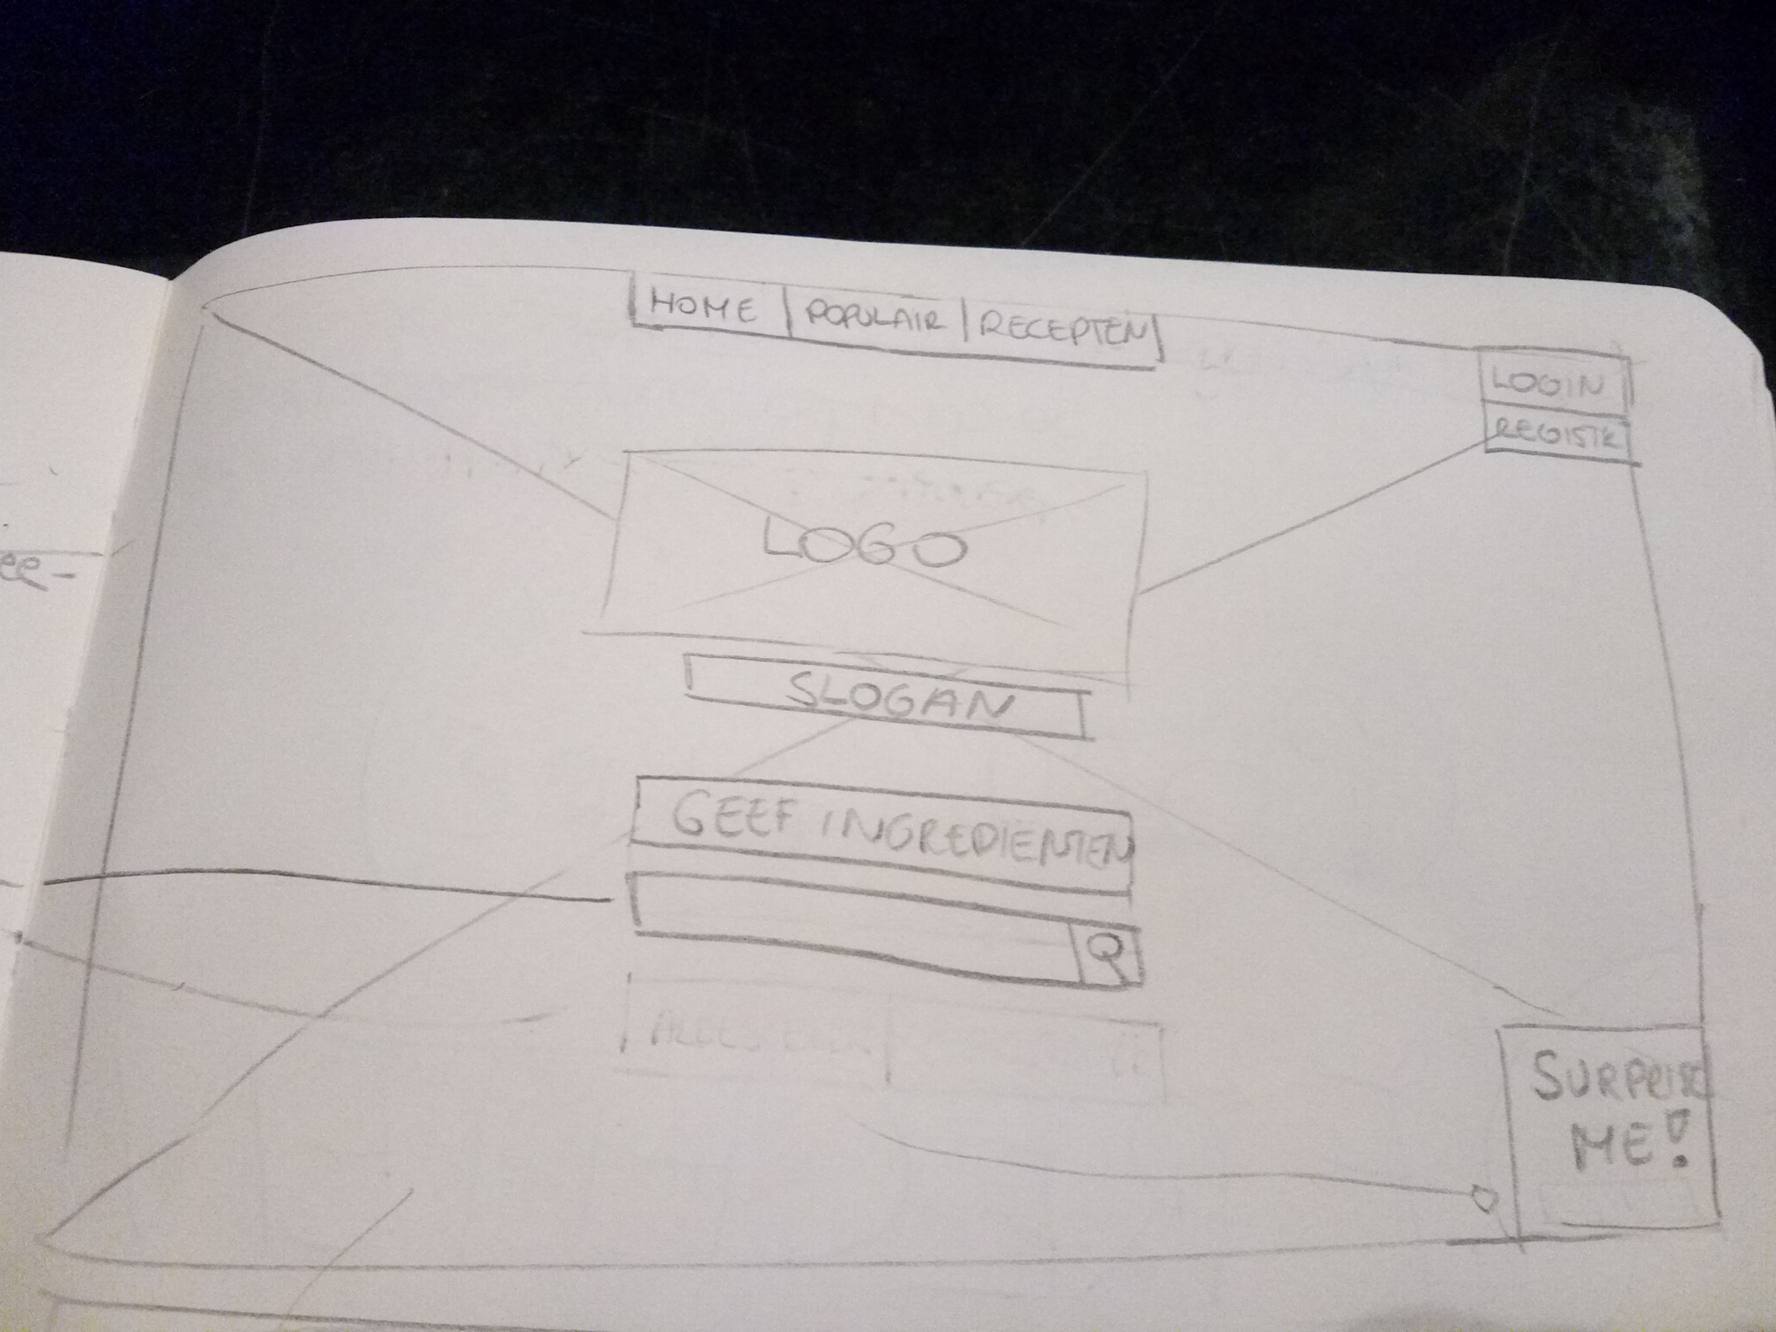 HOME | POPULAIR | RECEPTEN
LOGIN
REGISTR
LOGO
SLOGAN
GEEF INGREDIENTEN
SURPRISE
ME!
ee-